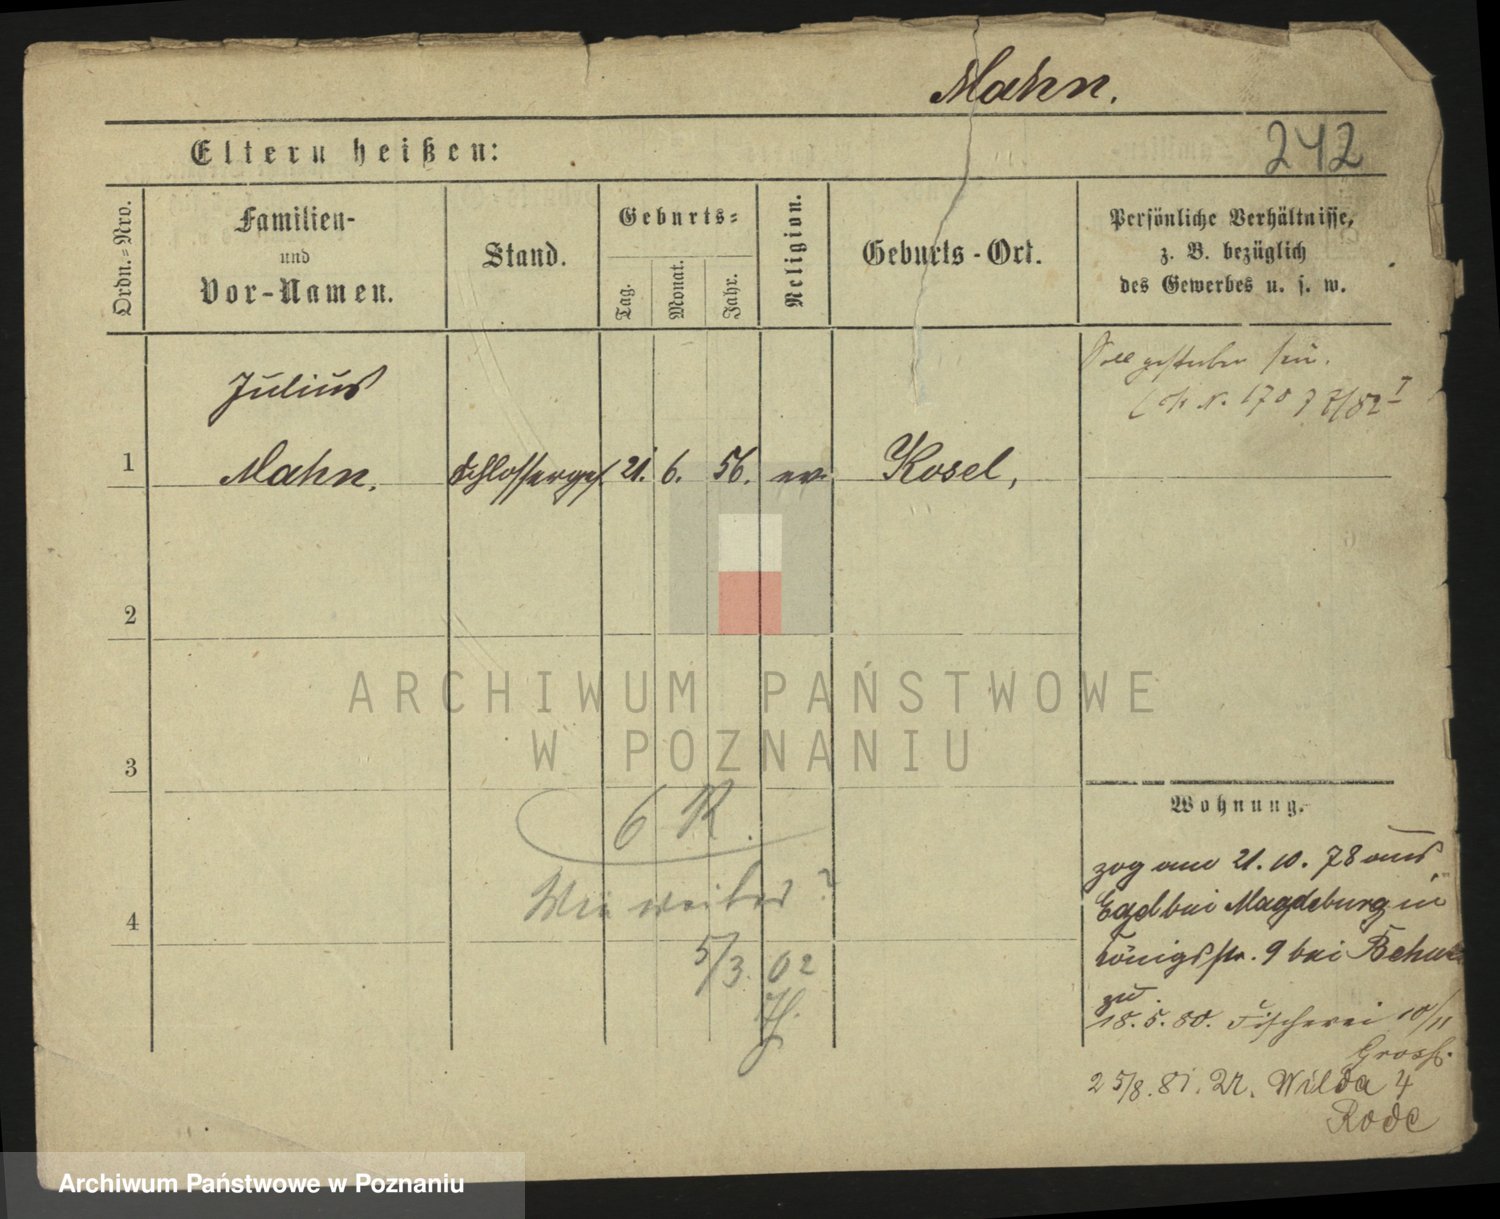 Mahn.
242
Eltern heißen:
Ordn.=Nro.
Familien-
und
Vor-Namen.
Stand.
Geburts=
Tag.
Monat.
Jahr.
Religion.
Geburts-Ort.
Persönliche Verhältnisse,
z. B. bezüglich
des Gewerbes u. s. w.
Soll gestorben sein.
1
Julius
Mahn.
Schlosserges.
21.
6.
56.
ev.
Kosel,
2
3
4
ARCHIWUM PAŃSTWOWE
W POZNANIU
6 R.
Wie weiter?
5/3. 02
Wohnung.
zog am 21. 10. 78 aus
Egel bei Magdeburg in
Königsstr. 9 bei
zu.
18. 5. 80. Fischerei 10/11
25/8. 81. Wilda 4
Rode
Archiwum Państwowe w Poznaniu